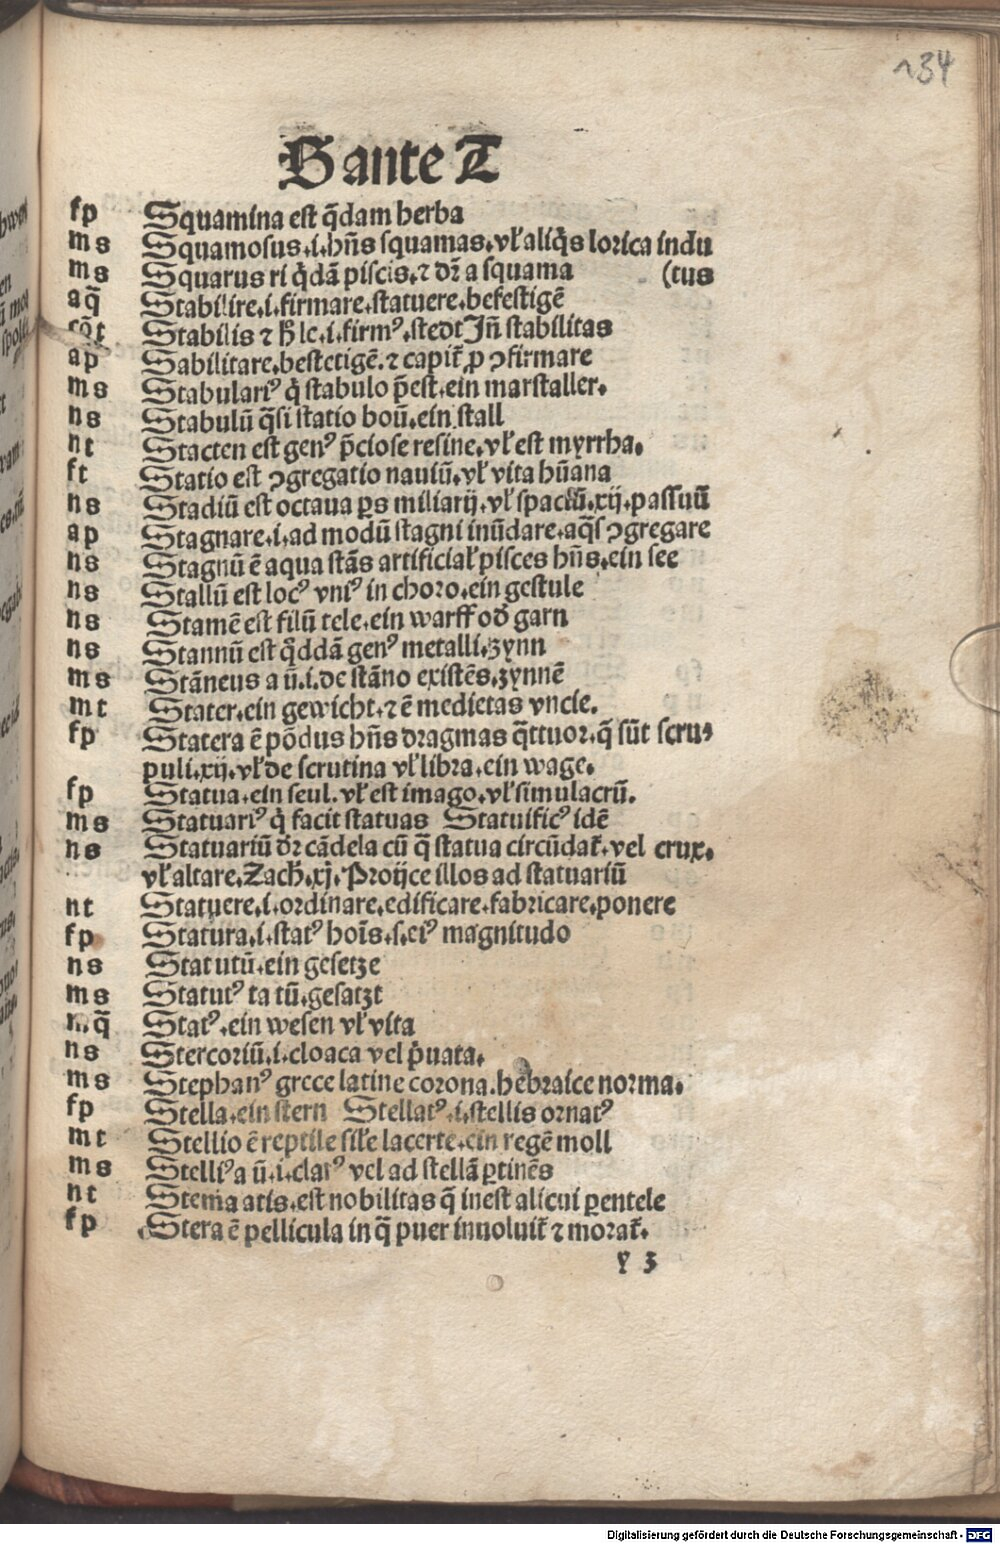 134
S ante T
fp Squamina est q̄dam herba
ms Squamosus.i.hn̄s squamas.vl̓ aliq̄s lorica indu
ms Squarus ri q̄dā piscis.⁊ dr̄ a squama (tus
aq̄ Stabilire.i.firmare.statuere.befestigē
Stabilis ⁊ h̓ le.i.firmꝰ.stedt Jn̄ stabilitas
ap Sabilitare.bestetigē.⁊ capit̄ ꝓ ꝯfirmare
ms Stabulariꝰ q̇ stabulo p̄est.ein marstaller.
ns Stabulū q̄si statio boū.ein stall
nt Stacten est genꝰ p̄ciose resine.vl̓ est myrrha.
ft Statio est ꝯgregatio nauiū.vl̓ vita hūana
ns Stadiū est octaua ꝑs miliarij.vl̓ spaciū.xij.passuū
ap Stagnare.i.ad modū stagni inūdare.aq̄s ꝯgregare
ns Stagnū ē aqua stās artificial̓ pisces hn̄s.ein see
ns Stallū est locꝰ vniꝰ in choro.ein gestule
ns Stamē est filū tele.ein warff od̓ garn
ns Stannū est q̇ddā genꝰ metalli.zynn
ms Stāneus a ū.i.de stāno existēs.zynnē
mt Stater.ein gewicht.⁊ ē medietas vncie.
fp Statera ē pōdus hn̄s dragmas q̄ttuor.q̄ sūt scru⸗
puli.xij.vl̓ de scrutina vl̓ libra.ein wage.
fp Statua.ein seul.vl̓ est imago.vl̓ simulacrū.
ms Statuariꝰ q̇ facit statuas Statuificꝰ idē
ns Statuariū dr̄ cādela cū q̄ statua circūdat̄.vel crux.
vl̓ altare.Zach̓.xj.Proijce illos ad statuariū
nt Statuere.i.ordinare.edificare.fabricare.ponere
fp Statura.i.statꝰ hoīs.s.eiꝰ magnitudo
ns Stat utū.ein gesetze
ms Statutꝰ ta tū.gesatzt
mq̄ Statꝰ.ein wesen vl̓ vita
ns Stercoriū.i.cloaca vel p̓uata.
ms Stephanꝰ grece latine corona.hebraice norma.
fp Stella.ein stern Stellatꝰ.i.stellis ornatꝰ
mt Stellio ē reptile sil̓e lacerte.ein regē moll
ms Stelliꝰ a ū.i.clarꝰ vel ad stellā ꝑtinēs
nt Stema atis.est nobilitas q̄ inest alicui ꝑentele
fp Stera ē pellicula in q̄ puer inuoluit̄ ⁊ morat̄.
y 3
Digitalisierung gefördert durch die Deutsche Forschungsgemeinschaft - DFG